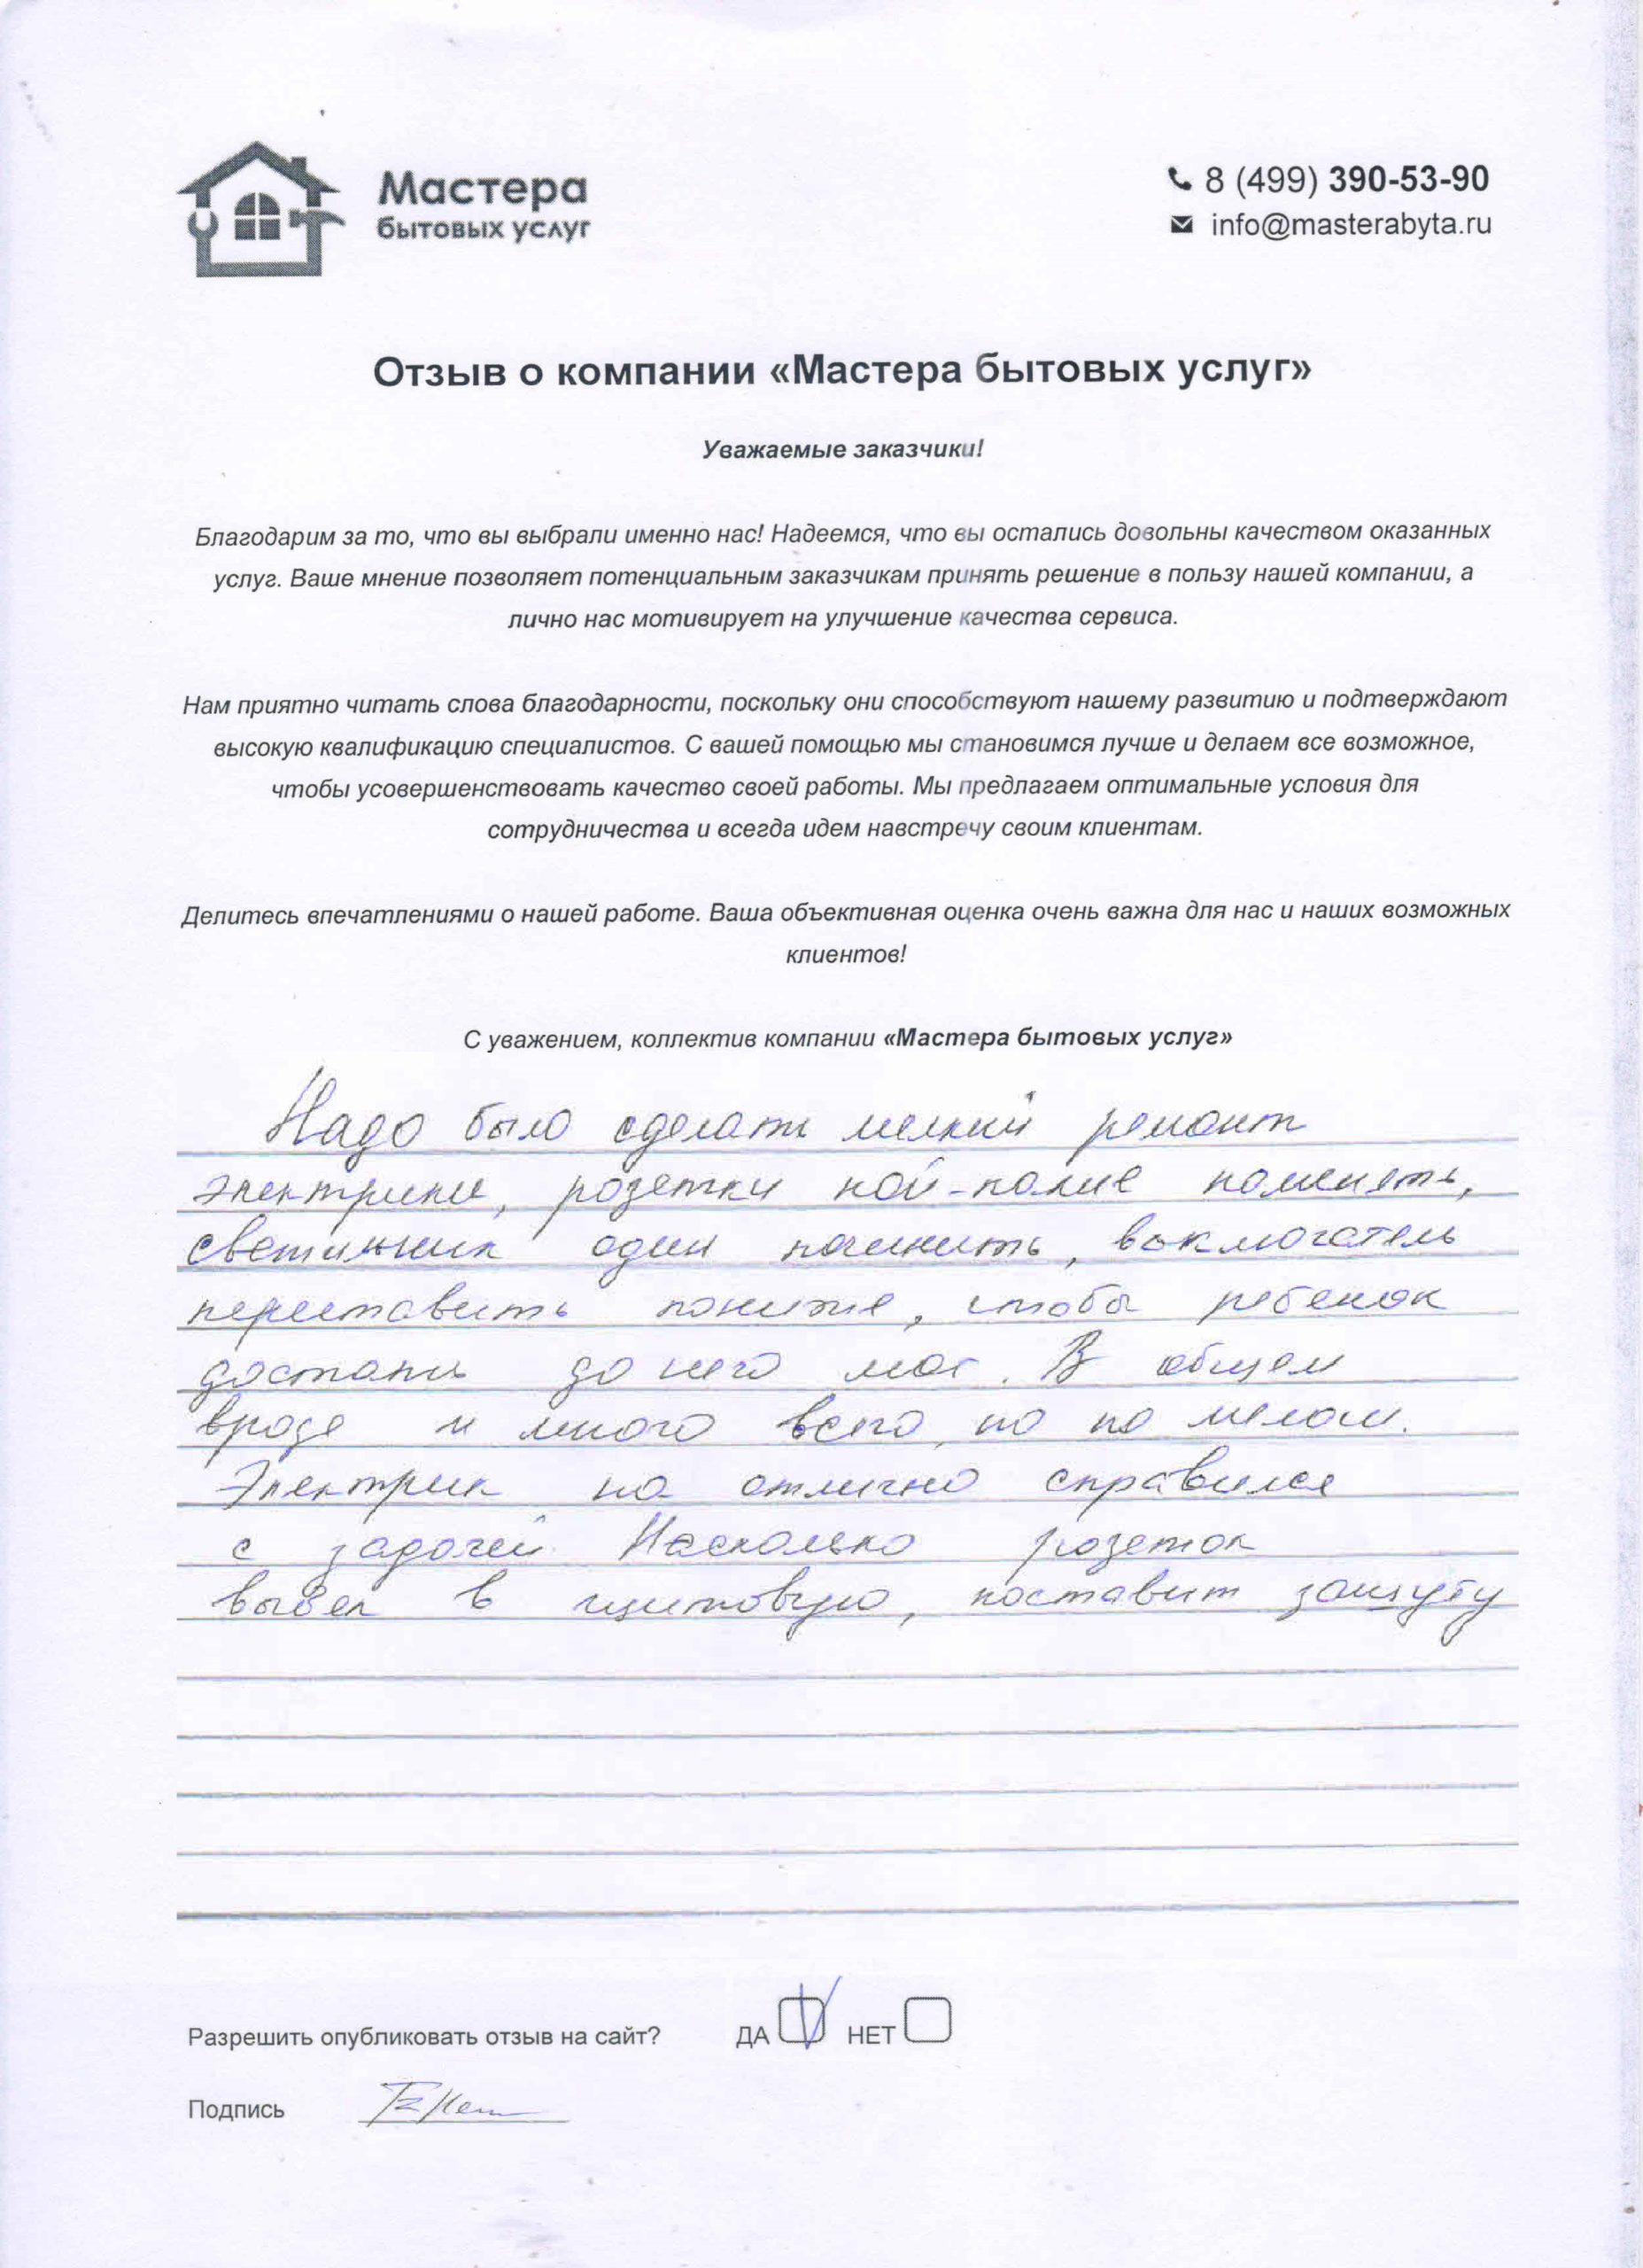 Мастера
бытовых услуг
8 (499) 390-53-90
info@masterabyta.ru
Отзыв о компании «Мастера бытовых услуг»
Уважаемые заказчики!
Благодарим за то, что вы выбрали именно нас! Надеемся, что вы остались довольны качеством оказанных
услуг. Ваше мнение позволяет потенциальным заказчикам принять решение в пользу нашей компании, а
лично нас мотивирует на улучшение качества сервиса.
Нам приятно читать слова благодарности, поскольку они способствуют нашему развитию и подтверждают
высокую квалификацию специалистов. С вашей помощью мы становимся лучше и делаем все возможное,
чтобы усовершенствовать качество своей работы. Мы предлагаем оптимальные условия для
сотрудничества и всегда идем навстречу своим клиентам.
Делитесь впечатлениями о нашей работе. Ваша объективная оценка очень важна для нас и наших возможных
клиентов!
С уважением, коллектив компании «Мастера бытовых услуг»
Надо было сделать мелкий ремонт
электрики, розетки кой-какие поменять,
светильник один починить, выключатель
переставить пониже, чтобы ребенок
достать до него мог. В общем
вроде и много всего, но по мелочи.
Электрик на отлично справился
с задачей. Несколько розеток
вывел в щитовую, поставил защиту
Разрешить опубликовать отзыв на сайт? ДА НЕТ
Подпись